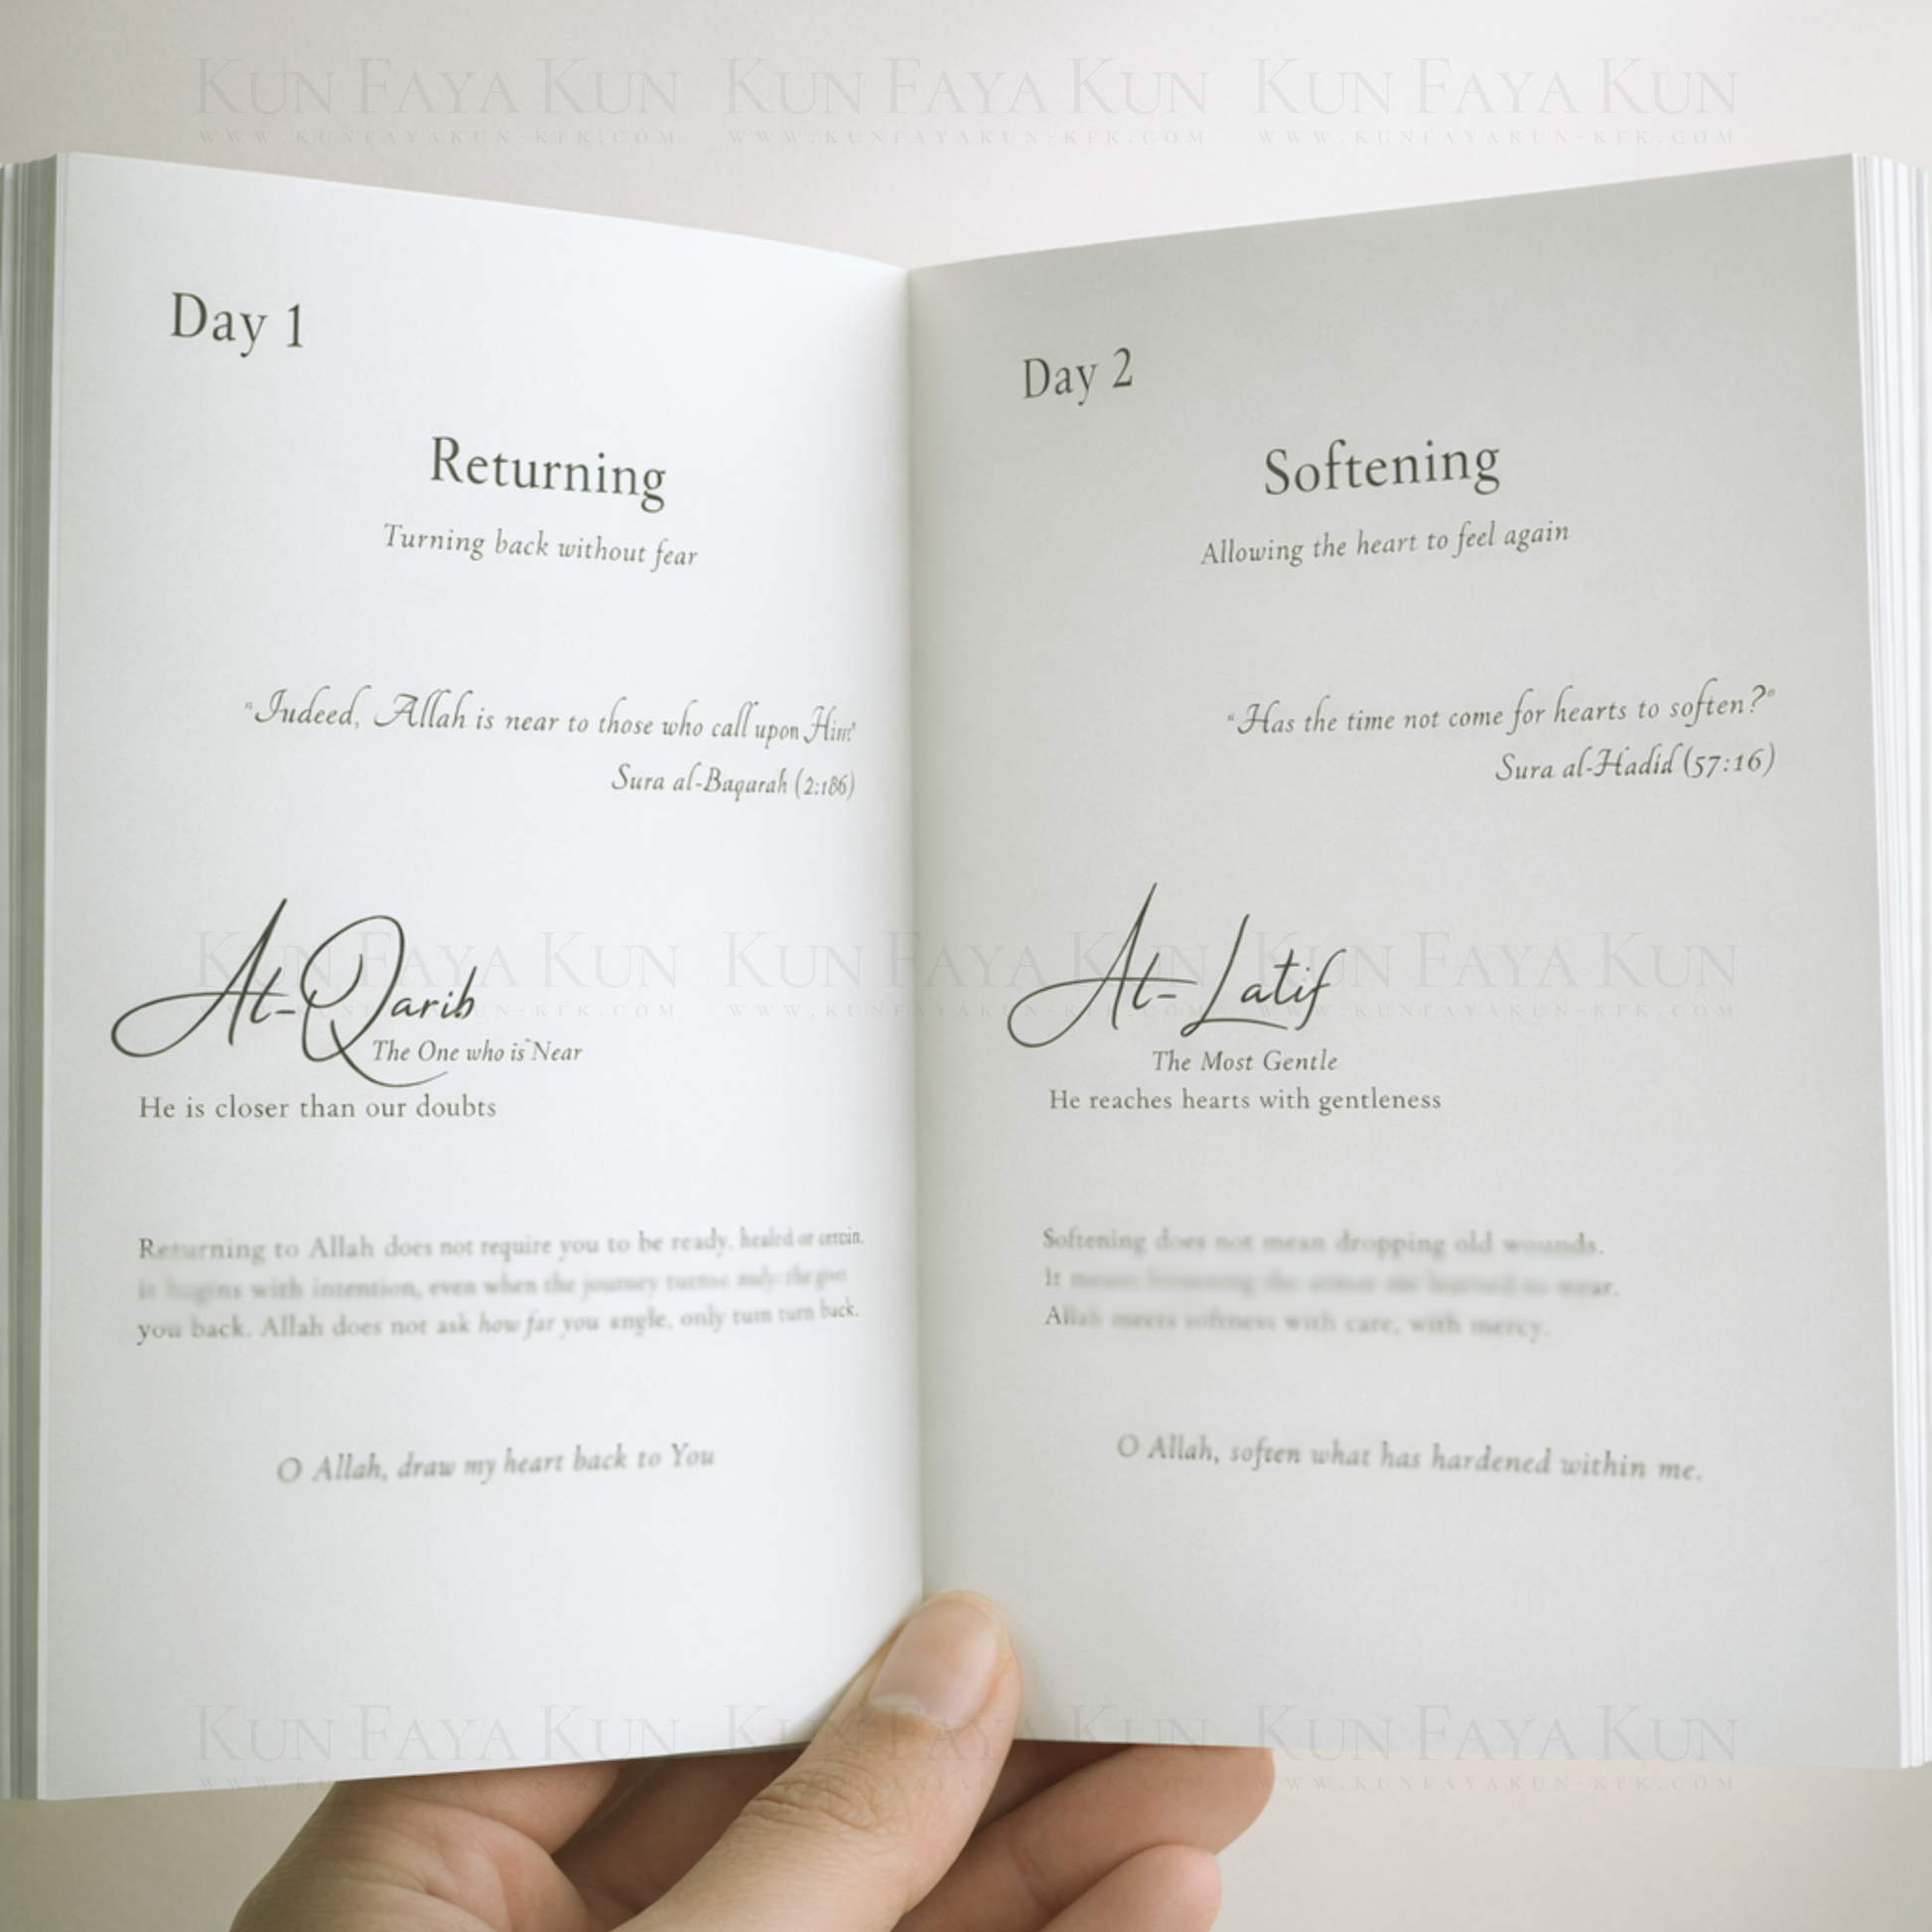 KUN FAYA KUN KUN FAYA KUN KUN FAYA KUN
WWW.KUNFAYAKUN-KFK.COM WWW.KUNFAYAKUN-KFK.COM WWW.KUNFAYAKUN-KFK.COM
Day 1
Returning
Turning back without fear
"Indeed, Allah is near to those who call upon Him"
Sura al-Baqarah (2:186)
Al-Qarib
The One who is Near
He is closer than our doubts
Returning to Allah does not require you to be ready, healed or certain.
with intention, even when the journey
you back. Allah does not ask how far you only turn turn back.
O Allah, draw my heart back to You
Day 2
Softening
Allowing the heart to feel again
"Has the time not come for hearts to soften?"
Sura al-Hadid (57:16)
Al-Latif
The Most Gentle
He reaches hearts with gentleness
Softening does not mean dropping old wounds.
It
Allah meets softness with care, with mercy.
O Allah, soften what has hardened within me.
KUN FAYA KUN KUN FAYA KUN KUN FAYA KUN
WWW.KUNFAYAKUN-KFK.COM
KUN FAYA KUN KUN FAYA KUN
WWW.KUNFAYAKUN-KFK.COM